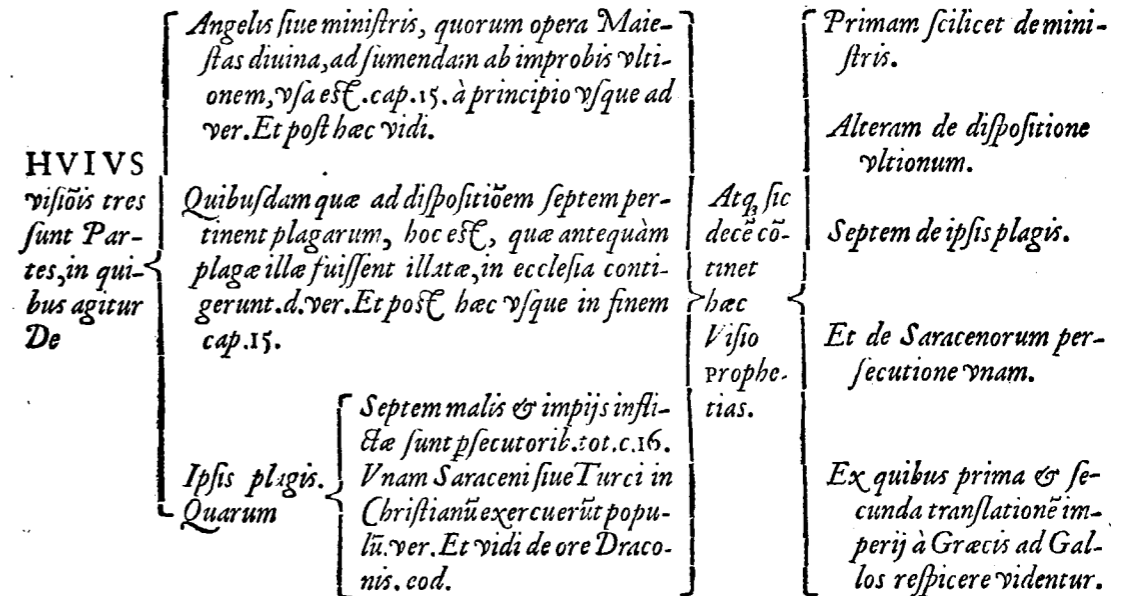 HVIVS
viſiõis tres
ſunt Par-
tes, in qui-
bus agitur
De
Angelis ſiue miniſtris, quorum opera Maie-
ſtas diuina, ad ſumendam ab improbis vlti-
onem, vſa eſt. cap. 15. à principio vſque ad
ver. Et poſt hæc vidi.
Quibuſdam quæ ad diſpoſitiõem ſeptem per-
tinent plagarum, hoc eſt, quæ antequàm
plagæ illæ fuiſſent illatæ, in eccleſia conti-
gerunt. d. ver. Et poſt hæc vſque in finem
cap. 15.
Ipſis plagis.
Quarum
Septem malis & impijs infli-
ctæ ſunt pſecutorib. tot. c. 16.
Vnam Saraceni ſiue Turci in
Chriſtianũ exercuerũt popu-
lũ. ver. Et vidi de ore Draco-
nis. eod.
Atq; ſic
decẽ cõ-
tinet
hæc
Viſio
prophe-
tias.
Primam ſcilicet de mini-
ſtris.
Alteram de diſpoſitione
vltionum.
Septem de ipſis plagis.
Et de Saracenorum per-
ſecutione vnam.
Ex quibus prima & ſe-
cunda tranſlationẽ im-
perij à Græcis ad Gal-
los reſpicere videntur.